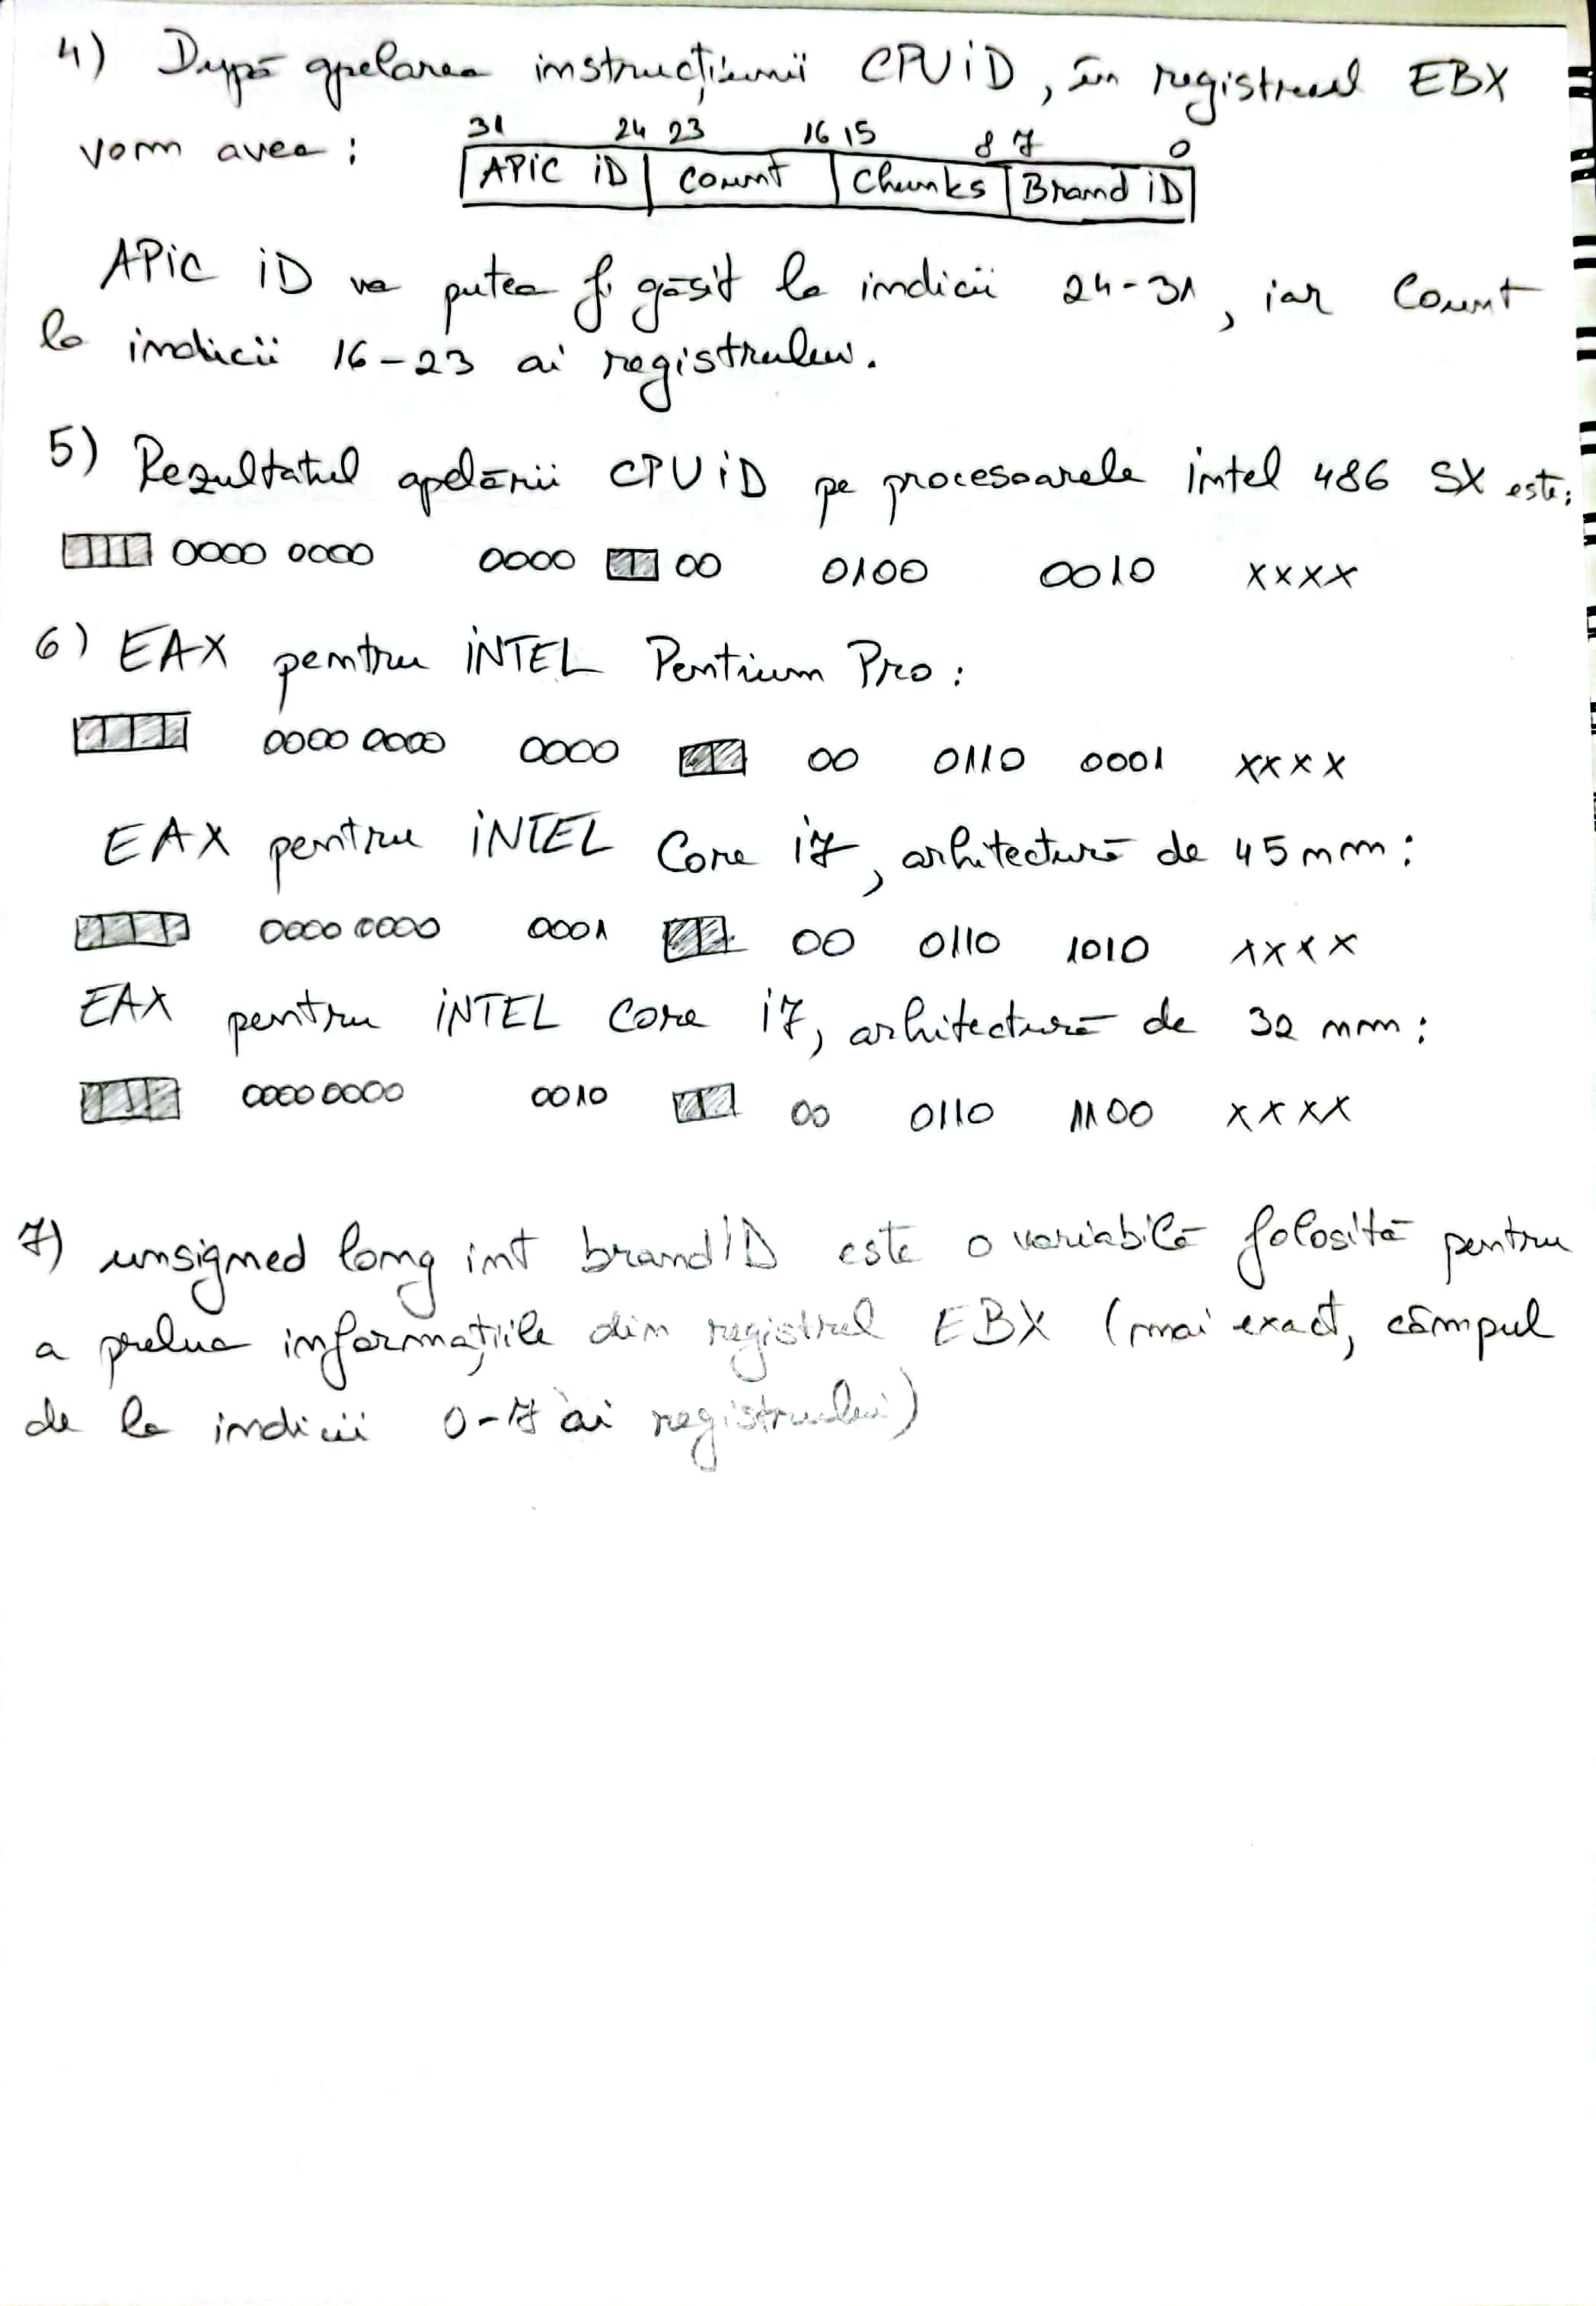 4) După apelarea instrucțiunii CPUiD, în registrul EBX
vom avea:
31 24 23 16 15 8 7 0
APiC iD Count Chunks Brand iD
APiC iD va putea fi găsit la indicii 24-31, iar Count
la indicii 16-23 ai registrului.
5) Rezultatul apelării CPUiD pe procesoarele intel 486 SX este:
0000 0000 0000 00 0100 0010 xxxx
6) EAX pentru iNTEL Pentium Pro:
0000 0000 0000 00 0110 0001 xxxx
EAX pentru iNTEL Core i7, arhitectură de 45 nm:
0000 0000 0001 00 0110 1010 xxxx
EAX pentru iNTEL Core i7, arhitectură de 32 nm:
0000 0000 0010 00 0110 1100 xxxx
7) unsigned long int brandID este o variabilă folosită pentru
a prelua informațiile din registrul EBX (mai exact, câmpul
de la indicii 0-7 ai registrului)